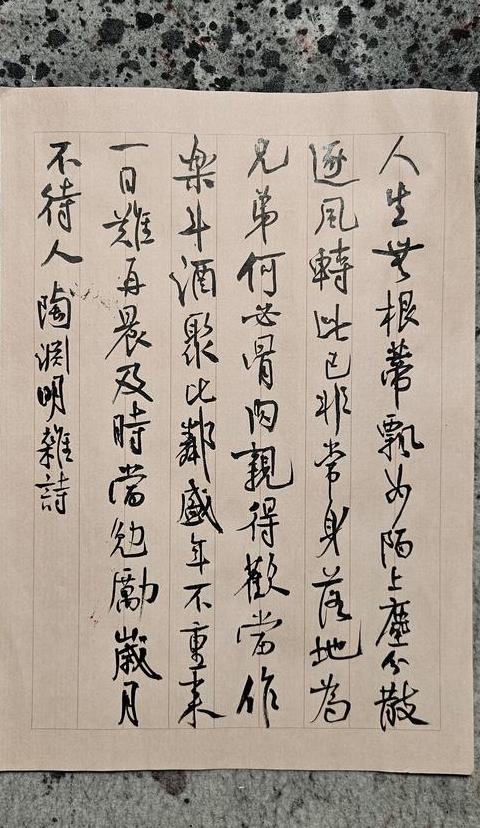 人生無根蒂飄如陌上塵分散
逐風轉此已非常身落地為
兄弟何必骨肉親得歡當作
樂斗酒聚比鄰盛年不重来
一日難再晨及時當勉勵歲月
不待人陶淵明雜詩